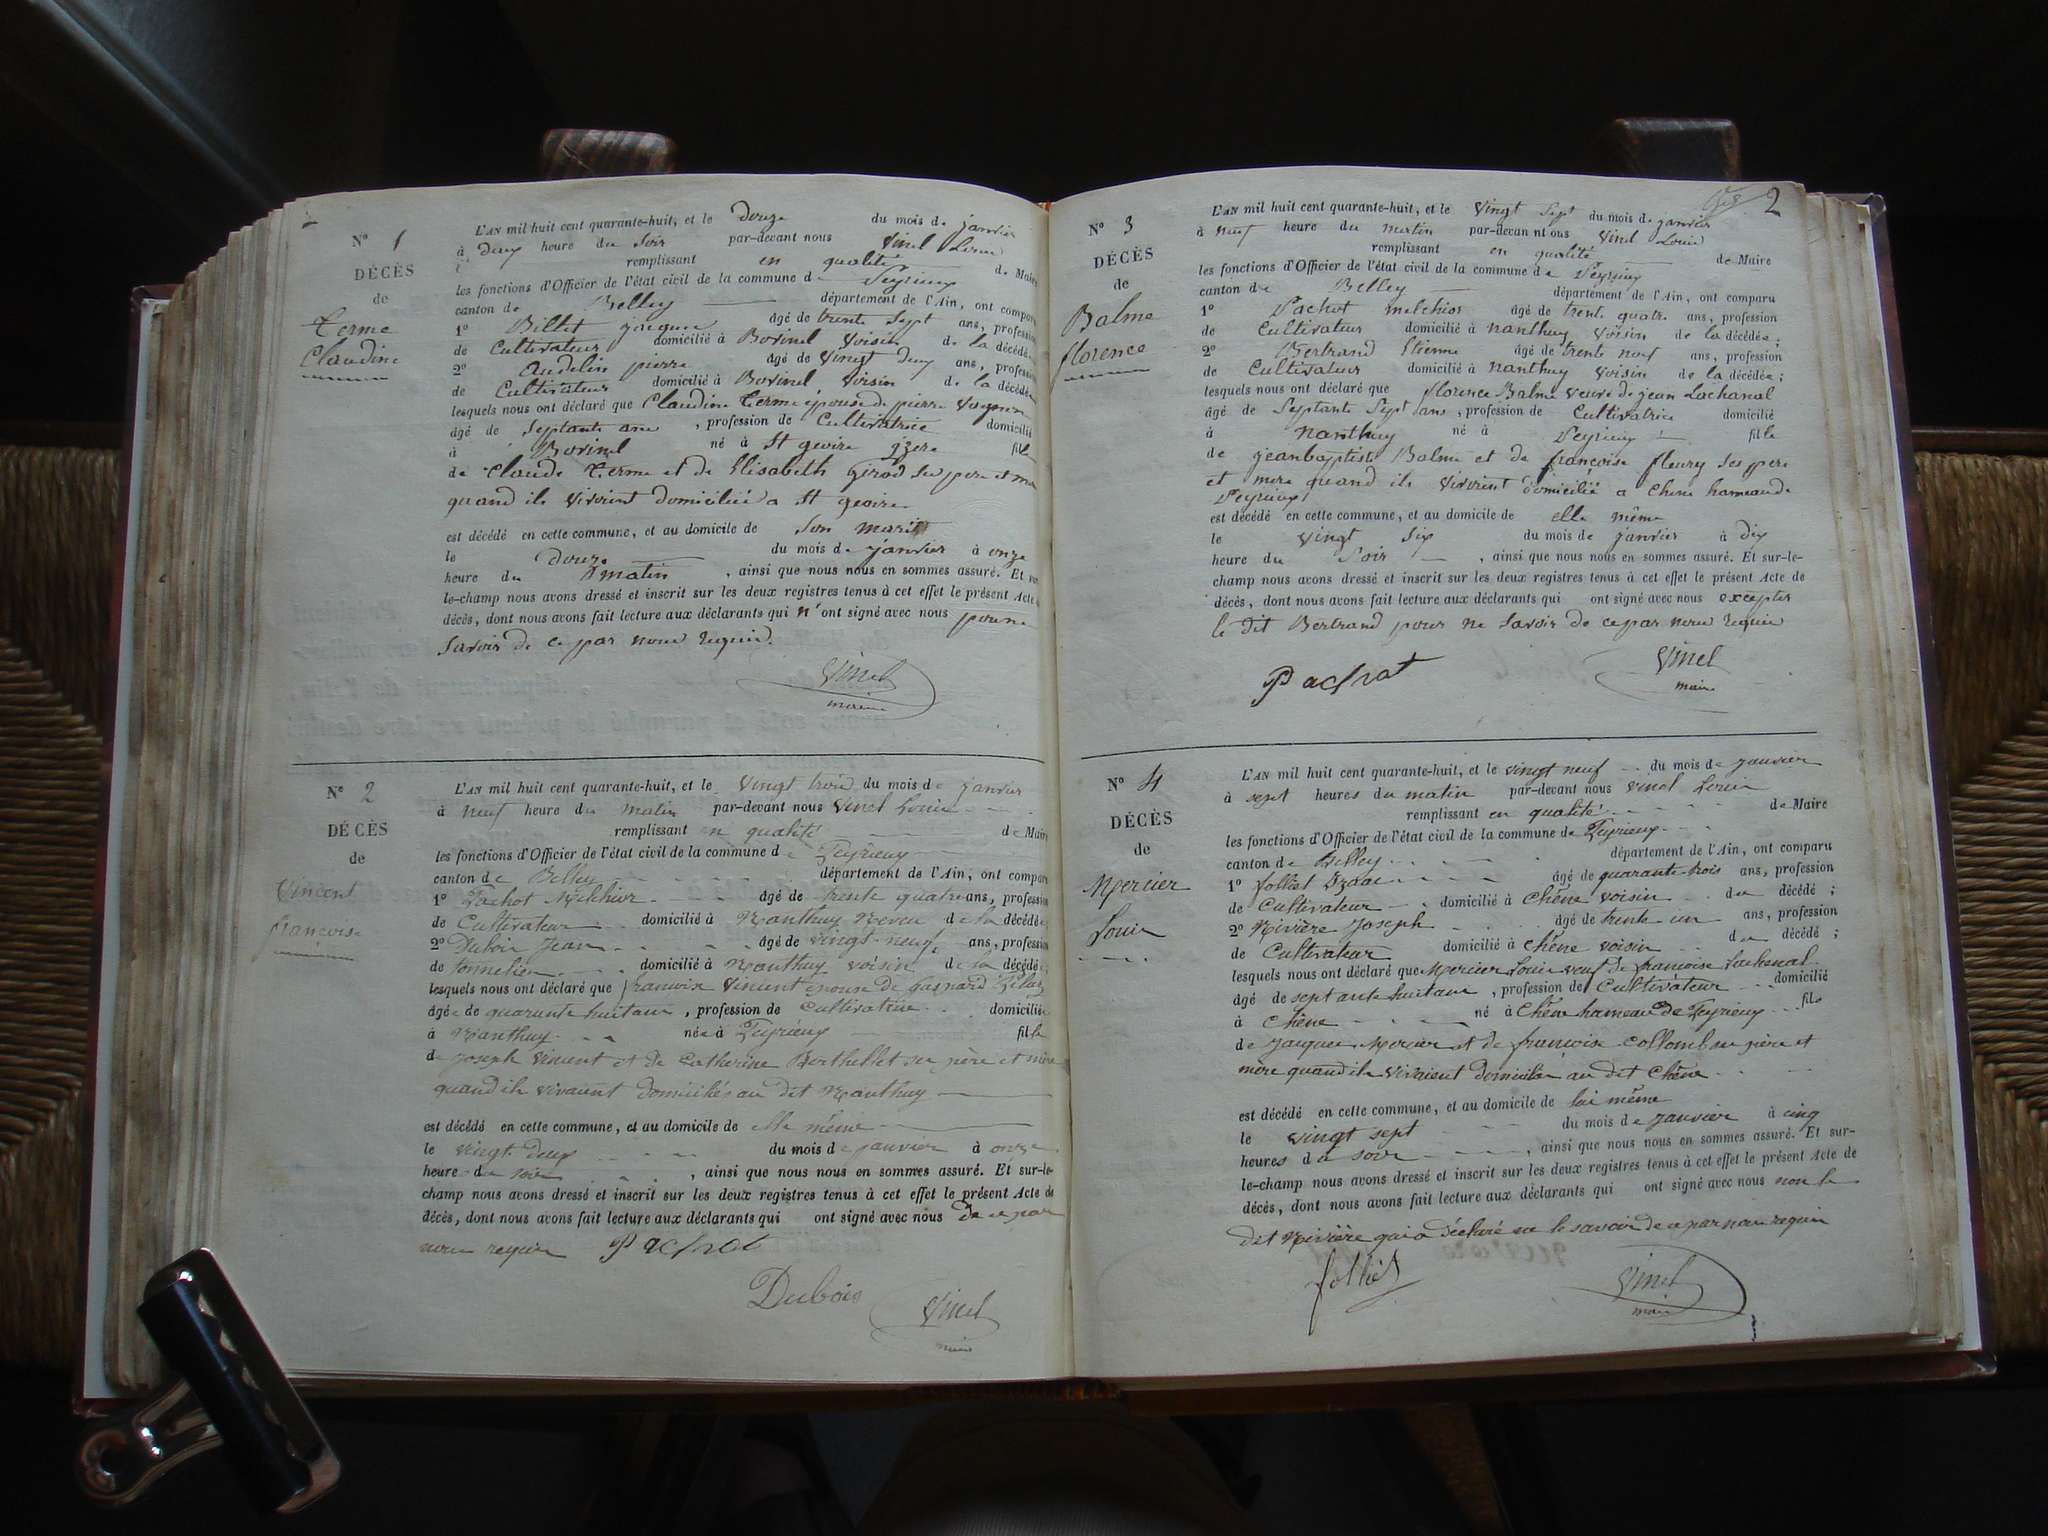 N° 1
DÉCÈS
de
Terme
Claudine
L'AN mil huit cent quarante-huit, et le Douze du mois de janvier
à Deux heure du Soir par-devant nous Vinel Louis
remplissant en qualité de Maire
les fonctions d'Officier de l'état civil de la commune de Peyrieux
canton de Belley département de l'Ain, ont comparu
1° Billet jacques âgé de trente Sept ans, profession
de Cultivateur domicilié à Bovinel Voisin de la décédée
2° Audelin pierre âgé de Vingt deux ans, profession
de Cultivateur domicilié à Bovinel Voisin de la décédée
lesquels nous ont déclaré que Claudine Terme épouse de pierre
âgé de Septante ans, profession de Cultivatrice domicilié
à Bovinel né à St geoire yzere fille
de Claude Terme et de Elisabeth Girod ses pere et mere
quand ils vivoint domiciliés a St geoire
est décédé en cette commune, et au domicile de Son mari
le Douze du mois de janvier à onze
heure du matin, ainsi que nous nous en sommes assuré. Et sur-
le-champ nous avons dressé et inscrit sur les deux registres tenus à cet effet le présent Acte de
décès, dont nous avons fait lecture aux déclarants qui n'ont signé avec nous pour ne
Savoir de ce par nous requis.
Vinel
maire
N° 2
DÉCÈS
de
Vincent
francoise
L'AN mil huit cent quarante-huit, et le Vingt trois du mois de janvier
à neuf heure du matin par-devant nous Vinel Louis
remplissant en qualité de Maire
les fonctions d'Officier de l'état civil de la commune de Peyrieux
canton de Belley département de l'Ain, ont comparu
1° Pachot Melchior âgé de trente quatre ans, profession
de Cultivateur domicilié à Nanthuy Neveu de la décédée
2° Dubois Jean âgé de vingt-neuf ans, profession
de tonnelier domicilié à Nanthuy voisin de la décédée
lesquels nous ont déclaré que francoise Vincent epouse de Gaspard
âgée de quarante huit ans, profession de Cultivatrice domiciliée
à Nanthuy née à Peyrieux fille
de Joseph Vincent et de Catherine Berthellet ses père et mère
quand ils vivaient domiciliés au dit Nanthuy
est décédé en cette commune, et au domicile de elle même
le vingt deux du mois de janvier à onze
heure du soir, ainsi que nous nous en sommes assuré. Et sur-le-
champ nous avons dressé et inscrit sur les deux registres tenus à cet effet le présent Acte de
décès, dont nous avons fait lecture aux déclarants qui ont signé avec nous de ce par
nous requis Pachot
Dubois Vinel
maire
2
N° 3
DÉCÈS
de
Balme
florence
L'AN mil huit cent quarante-huit, et le Vingt Sept du mois de janvier
à neuf heure du matin par-devan nt ous Vinel Louis
remplissant en qualité de Maire
les fonctions d'Officier de l'état civil de la commune de Peyrieux
canton de Belley département de l'Ain, ont comparu
1° Pachot melchior âgé de trent quatre ans, profession
de Cultivateur domicilié à nanthuy Voisin de la décédée;
2° Bertrand Etienne âgé de trente neuf ans, profession
de Cultivateur domicilié à nanthuy voisin de la décédée;
lesquels nous ont déclaré que florence Balme veuve de jean Lachanal
âgé de Septante Sept ans, profession de Cultivatrice domicilié
à nanthuy né à Peyrieux fille
de jeanbaptiste Balme et de françoise fleury Ses pere
et mere quand ils vivoint domicilié a Chene hameau de
Peyrieux
est décédé en cette commune, et au domicile de elle même
le vingt Six du mois de janvier à dix
heure du Soir, ainsi que nous nous en sommes assuré. Et sur-le-
champ nous avons dressé et inscrit sur les deux registres tenus à cet effet le présent Acte de
décès, dont nous avons fait lecture aux déclarants qui ont signé avec nous excepter
le dit Bertrand pour ne Savoir de ce par nous requis
Pachot Vinel
maire
N° 4
DÉCÈS
de
Mercier
Louis
L'AN mil huit cent quarante-huit, et le vingt neuf du mois de janvier
à sept heures du matin par-devant nous vinel Louis
remplissant en qualité de Maire
les fonctions d'Officier de l'état civil de la commune de Peyrieux
canton de Belley département de l'Ain, ont comparu
1° folliet Izaac âgé de quarante-trois ans, profession
de Cultivateur domicilié à Chêne voisin du décédé;
2° Rivière Joseph âgé de trente un ans, profession
de Cultivateur domicilié à Chêne voisin du décédé;
lesquels nous ont déclaré que Mercier Louis veuf de francoise Lachenal
âgé de septante huit ans, profession de Cultivateur domicilié
à Chêne né à Chêne hameau de Peyrieux fils
de Jacques Mercier et de francoise Collomb ses père et
mère quand ils vivaient domiciliés au dit Chêne
est décédé en cette commune, et au domicile de lui même
le vingt sept du mois de janvier à cinq
heures du soir, ainsi que nous nous en sommes assuré. Et sur-
le-champ nous avons dressé et inscrit sur les deux registres tenus à cet effet le présent Acte de
décès, dont nous avons fait lecture aux déclarants qui ont signé avec nous non le
dit Rivière qui a déclaré ne le savoir de ce par nous requis
folliet Vinel
maire